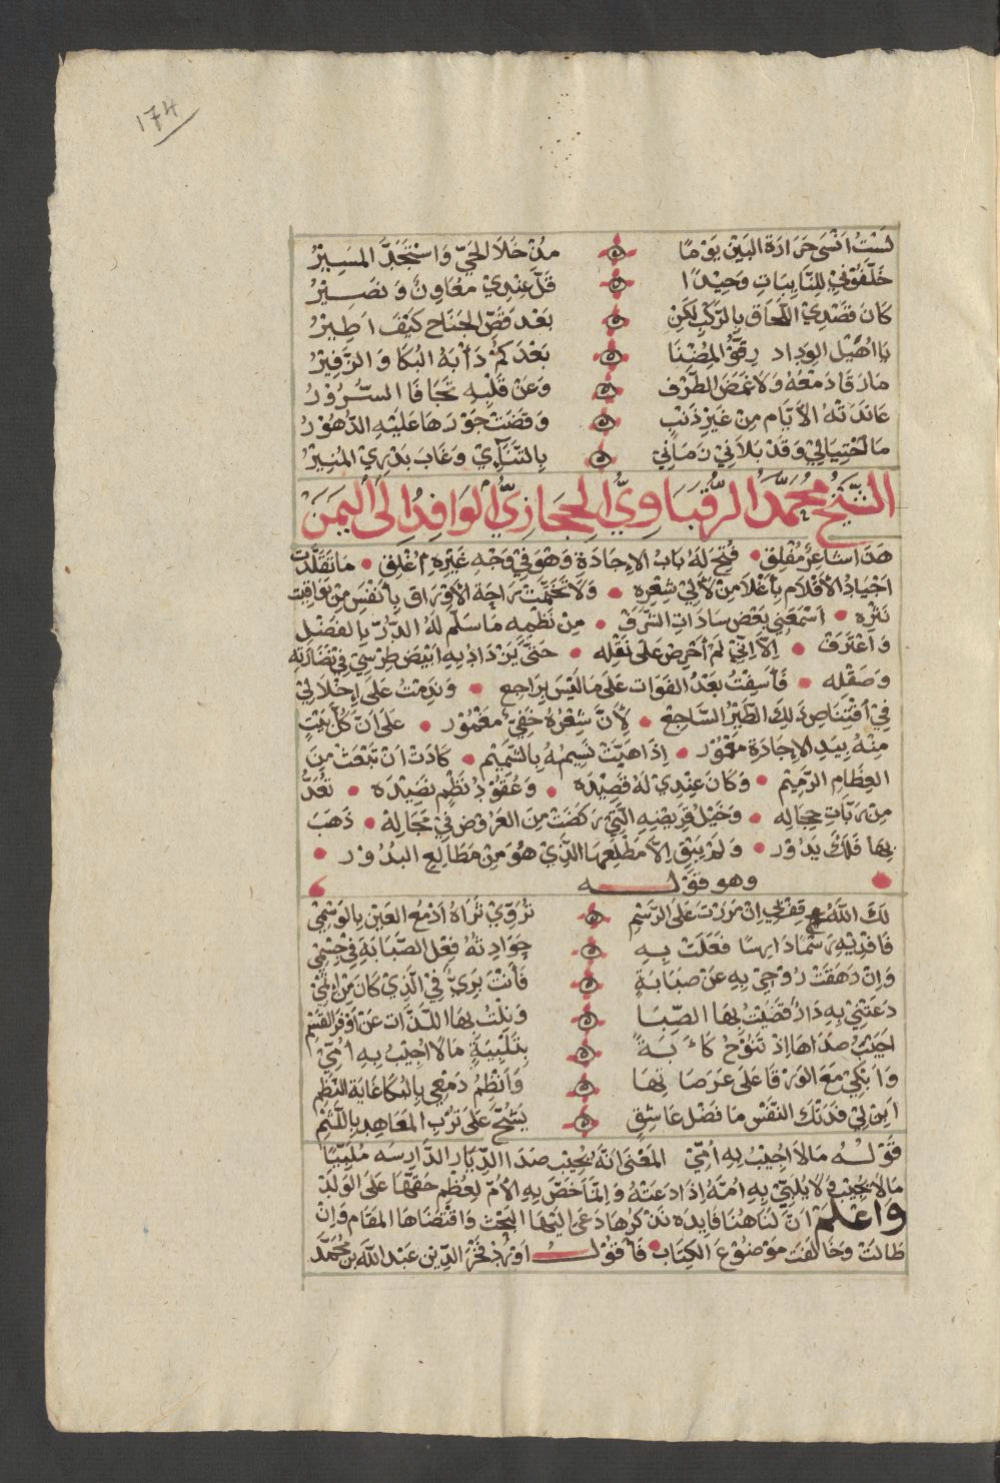 174
لَسْتُ اَنْسَى حَرَارَةَ البَيْنِ يَوْمًا ۞ مُذْ خَلَا الحَيّ وَاسْتَجَدَّ المَسِيْرُ
خَلَّفُوْنِيْ لِلنَّايِبَاتِ وَحِيْدًا ۞ قَلَّ عِنْدِيْ مُعَاوِنٌ وَ نَصِيْرُ
كَانَ قَصْدِيْ اللَّحَاقَ بِالرَّكْبِ لَكِنْ ۞ بَعْدَ قَصِّ الجَنَاحِ كَيْفَ اَطِيْرُ
يَا اُهَيْلَ الوِدَادِ رِقُّوْا لِمُضْنَا ۞ بَعْدَكُمْ دَأْبُهُ البُكَا وَ الزَّفِيْرُ
مَا رَقَا دَمْعُهُ وَلَا غَمَضَ الطَّرْف ۞ وَعَنْ قَلْبِهِ تَجَافَا السُّرُوْرُ
عَانَدَتْهُ الأَيَّام مِنْ غَيْرِ ذَنْبٍ ۞ وَقَضَتْ جَوْرَهَا عَلَيْهِ الدُّهُوْرُ
مَا احْتِيَالِيْ وَقَدْ بَلَانِيْ زَمَانِيْ ۞ بِالتَّنَآئِيْ وَغَابَ بَدْرِي المُنِيْرُ
الشَّيْخُ مُحَمَّدُ الرَّقْبَاوِيُّ الحِجَازِيُّ الوَافِدُ اِلَى اليَمَنْ
هَذَا شَاعِرٌ مُفْلِق • فُتِحَ لَهُ بَابُ الاِجَادَةِ وَهُوَ فِيْ وَجْهِ غَيْرِهِ مُغْلِق • مَا تَقَلَّدَت
اَجْيَادُ الأَقْلَام بِأَغْلَا مِنْ لَآلِيْ شِعْرِهِ • وَلَا تَخَتَّمَتْ رَاحَة الأَوْرَاق بِأَنْفَسَ مِنْ يَوَاقِيْت
نَثْرِه • اَسْمَعَنِي بَعْض سَادَاتِ الشَّرَفْ • مِنْ نَظْمِهِ مَا سَلَّمَ لَهُ الدُّرّ بِالفَضْلِ
وَاعْتَرَفْ • اِلَّا اِنِّيْ لَمْ اَحْرِصْ عَلَى نَقْلِه • حَتَّى يَزْدَادَ بِهِ اَبْيَض طِرْسِيْ فِيْ نَضَارَتِهِ
وَصَقْلِه • فَأَسِفْتُ بَعْدَ الفَوَات عَلَى مَا لَيْسَ بِرَاجِع • وَنَدِمْتُ عَلَى اِخْلَالِيْ
فِيْ اقْتِنَاصِ ذَلِكَ الطَّيْرِ السَّاجِعْ • لِأَنَّ شِعْرَهُ خَفِيّ مَغْمُوْر • عَلَى اَنَّ كُلَّ بَيْتٍ
مِنْهُ بِيَدِ الاِجَادَةِ مَعْمُوْر • اِذَا هَبَّتْ نَسِيْمُهُ بِالشَّمِيْم • كَادَتْ اَنْ تَبْعَثَ مِنَ
العِظَامِ الرَّمِيْم • وَكَانَ عِنْدِيْ لَهُ قَصِيْدَه • وَعُقُوْدُ نَظْمٍ نَضِيْدَه • تُعَدُّ
مِنْ رَبَّاتِ حِجَالِه • وَخَيْلُ قَرِيْضِهِ الَّتِيْ رَكَضَتْ مِنَ العَرُوْضِ فِيْ مَجَالِهْ • ذَهَبَ
بِهَا فَلَكٌ يَدُوْر • وَلَمْ يَبْقَ اِلَّا مَطْلَعهَا الَّذِيْ هُوَ مِنْ مَطَالِعِ البُدُوْر •
• وهو قوله •
لَكَ اللَّهُ قِفْ لِيْ اِنْ مَرَرْتَ عَلَى الرَّسْمِ ۞ نُرَوِّيْ ثَرَاهُ اَدْمُعَ العَيْنِ بِالوَسْمِيْ
فَافْدِيْهِ رَسْمًا دَارِسًا فَعَلَتْ بِهِ ۞ حَوَادِثُهُ فِعْلَ الصَّبَابَةِ فِيْ جِسْمِيْ
وَاِنْ زَهَقَتْ رُوْحِيْ بِهِ عَنْ صَبَابَةٍ ۞ فَأَنْتَ بَرِيٌّ فِيْ الَّذِيْ كَانَ مِنْ اِثْمِيْ
دَعَتْنِيْ بِهِ دَارٌ قَضَيْتُ بِهَا الصِّبَا ۞ وَنِلْتُ بِهَا اللَّذَّات عَنْ اَوْفَرِ القِسْمِ
اُجِيْبُ صَدَاهَا اِذْ تَنُوْحُ كَآبَةً ۞ بِتَلْبِيَةٍ مَا لَا اُجِيْبُ بِهِ اُمِّيْ
وَاَبْكِيْ مَعَ الوَرْقَا عَلَى عَرَصَاتِهَا ۞ وَاَنْظِمُ دَمْعِي بِالبُكَا غَايَةَ النَّظْمِ
اَبِنْ لِيْ فَدَتْكَ النَّفْس مَا فَضْل عَاشِقٍ ۞ يَشُحّ عَلَى تُرْبِ المَعَاهِدِ بِاللَّثْمِ
قَوْلُهُ مَا لَا اُجِيْبُ بِهِ اُمِّيْ المَعْنَى اَنَّهُ يُجِيْب صَدَا الدِّيَارِ الدَّارِسَه مُلَبِّيًا
مَا لَا يُجِيْب وَلَا يُلَبِّيْ بِهِ اُمّهُ اِذَا دَعَتْهُ وَاِنَّمَا خَصَّ بِهِ الأُمّ لِعِظَمِ حَقِّهَا عَلَى الوَلَدْ
وَاعْلَمْ اَنَّ لَنَا هُنَا فَايِدَه نَذْكُرهَا دَعَى اِلَيْهَا البَحْث وَاقْتَضَاهَا المَقَام وَاِنْ
طَالَتْ وَخَالَفَتْ مَوْضُوْعَ الكِتَاب • فَأَقُوْلُ اَوْرَدَ فَخْرُ الدِّيْن عَبْدُ اللَّه بن مُحَمَّد